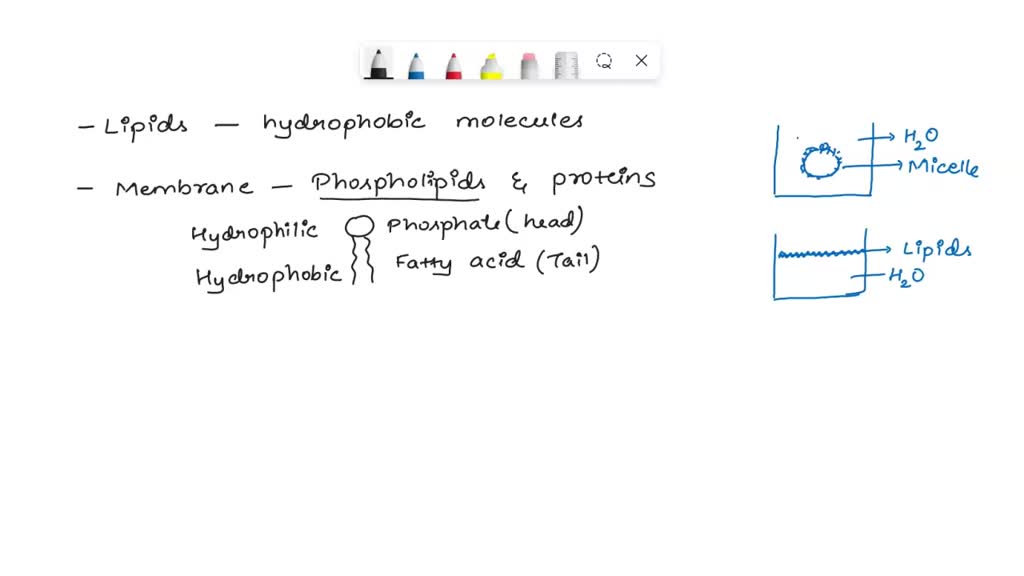 - Lipids - hydrophobic molecules
- Membrane - Phospholipids & proteins
Hydrophilic Phosphate (head)
Hydrophobic Fatty acid (Tail)
H₂O
Micelle
Lipids
H₂O